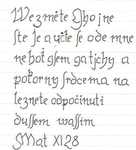 Wezměte Gho jne
ste Je a učte se ode mne
neboť gsem ga tichy a
pokorny Srdcem a na
leznete odpočinuti
dussem wassim
SMat XI 28